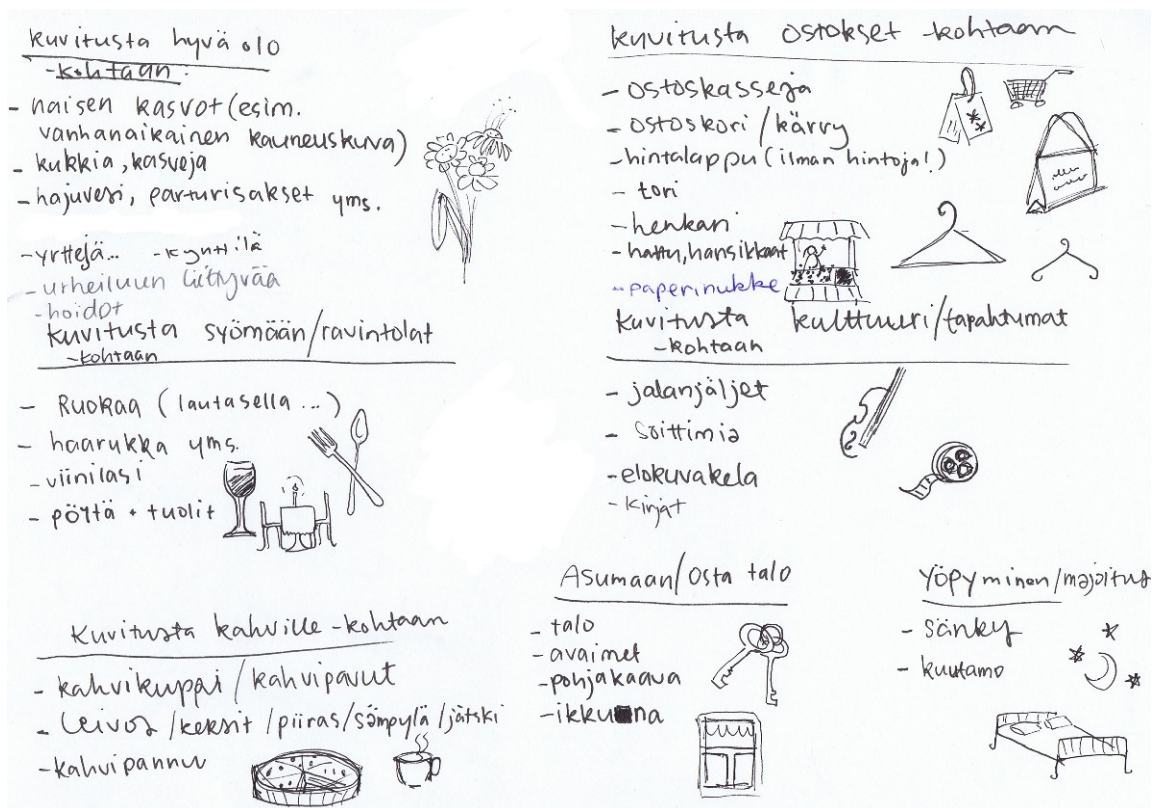 kuvitusta hyvä olo
-kohtaan.
- naisen kasvot (esim.
vanhanaikainen kauneuskuva)
- kukkia, kasveja
- hajuvesi, parturisakset yms.
- yrttejä... - kynttilä
- urheiluun liittyvää
- hoidot
kuvitusta syömään/ravintolat
-kohtaan
- Ruokaa (lautasella ...)
- haarukka yms.
- viinilasi
- pöytä + tuolit
Kuvitusta kahville -kohtaan
- kahvikuppi / kahvipavut
- leivos / keksit / piiras / sämpylä / jätski
- kahvipannu
kuvitusta ostokset -kohtaan
- ostoskasseja
- ostoskori / kärry
- hintalappu (ilman hintoja!)
- tori
- henkari
- hattu, hansikkaat
- paperinukke
kuvitusta kulttuuri/tapahtumat
-kohtaan
- jalanjäljet
- soittimia
- elokuvakela
- kirjat
Asumaan/Osta talo
- talo
- avaimet
- pohjakaava
- ikkuna
Yöpyminen/majoitus
- sänky
- kuutamo